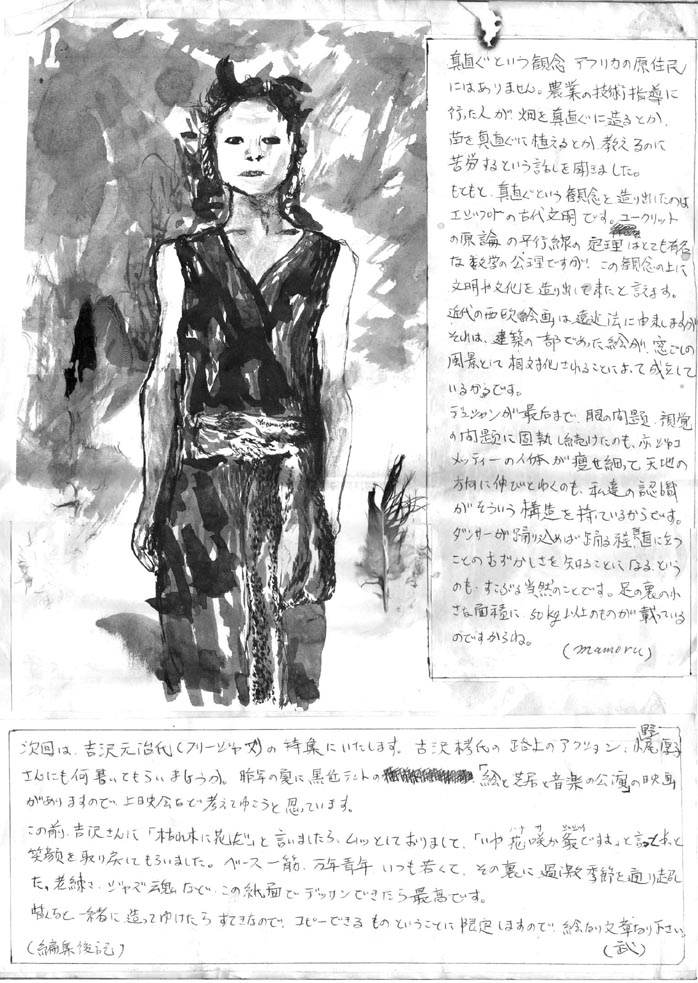 真直ぐという観念 アフリカの原住民
にはありません。農業の技術指導に
行った人が 畑を真直ぐに造るとか、
苗を真直ぐに植えるとか、教えるのに
苦労するという話しを聞きました。
もともと、真直ぐという観念を造り出したのは
エジプトの古代文明です。ユークリット
の原論の平行線の定理はとても有名
な数学の公理ですが、この観念の上に
文明や文化を造り出して来たと言えます。
近代の西欧絵画は遠近法に由来しますが
それは、建築の一部であった絵が、窓ごしの
風景として相対化されることによって成立して
いるからです。
デュシャンが最后まで、眼の問題、視覚
の問題に固執し続けたのも、ジャコ
メッティーの人体が痩せ細って、天地の
方向に伸びとわくのも、私達の認識
がそういう構造を持っているからです。
ダンサーが踊り込めば踊る程、真直に立つ
ことのむずかしさを知ることになる、という
のも、すこぶる当然のことです。足の裏の小
さな面積に、50kg以上のものが載っている
のですからね。
(mamoru)
次回は、吉沢元治氏(フリージャズ)の特集にいたします。古沢栲氏の路上のアクション、
さんにも何か書いてもらいましょうか。昨年の夏に黒色テントの「絵と芝居と音楽の公演」の映画
がありますので、上映会など考えてゆこうと思っています。
この前、吉沢さんに「枯れ木に花だ」と言いましたら、ムッとしておりまして、「いや花咲か爺ですね」と言って、やっと
笑顔を取り戻してもらいました。ベース一筋、万年青年 いつも若くて、その裏に過激な季節を通り越し
た。老練さ、ジャズ魂など、この紙面でデッサンできたら最高です。
皆んなと一緒に造ってゆけたらすてきなので、コピーできるものということに限定しますので、絵なり文章なり下さい。
(編集後記)
(武)